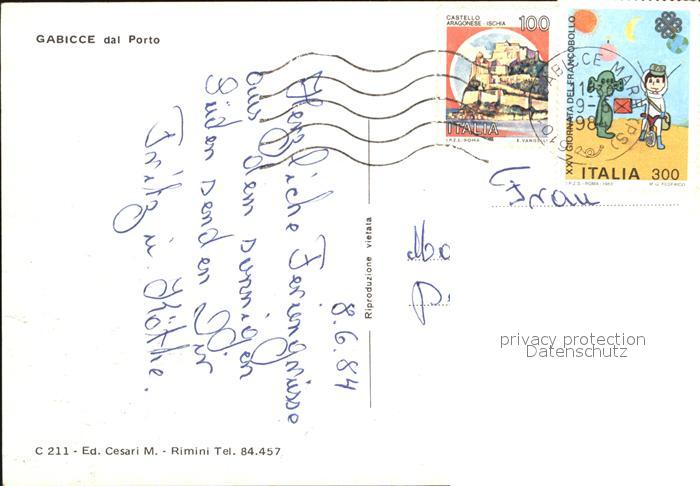 GABICCE dal Porto
CASTELLO
ARAGONESE ISCHIA
100
ITALIA
I.P.Z.S. ROMA
XXV GIORNATA DEL FRANCOBOLLO
ITALIA 300
I.P.Z.S. - ROMA - 1983
GABICCE MARE (PS)
8.6.84
Herzliche Feriengrüsse
aus dem sonnigen
Süden senden Dir
Fritz u. Käthe.
Riproduzione vietata
Frau
privacy protection
Datenschutz
C 211 - Ed. Cesari M. - Rimini Tel. 84.457